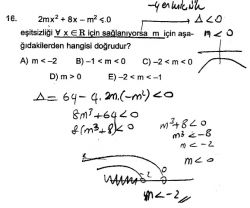 Δ < 0
m < 0
16. 2mx² + 8x – m² ≤ 0
eşitsizliği ∀ x ∈ R için sağlanıyorsa m için aşa-
ğıdakilerden hangisi doğrudur?
A) m < –2 B) –1 < m < 0 C) –2 < m < 0
D) m > 0 E) –2 < m < –1
Δ = 64 – 4.2m.(-m²) < 0
8m³ + 64 < 0
8(m³+8) < 0
m³+8 < 0
m³ < -8
m < -2
m < 0
-2 0
m < -2